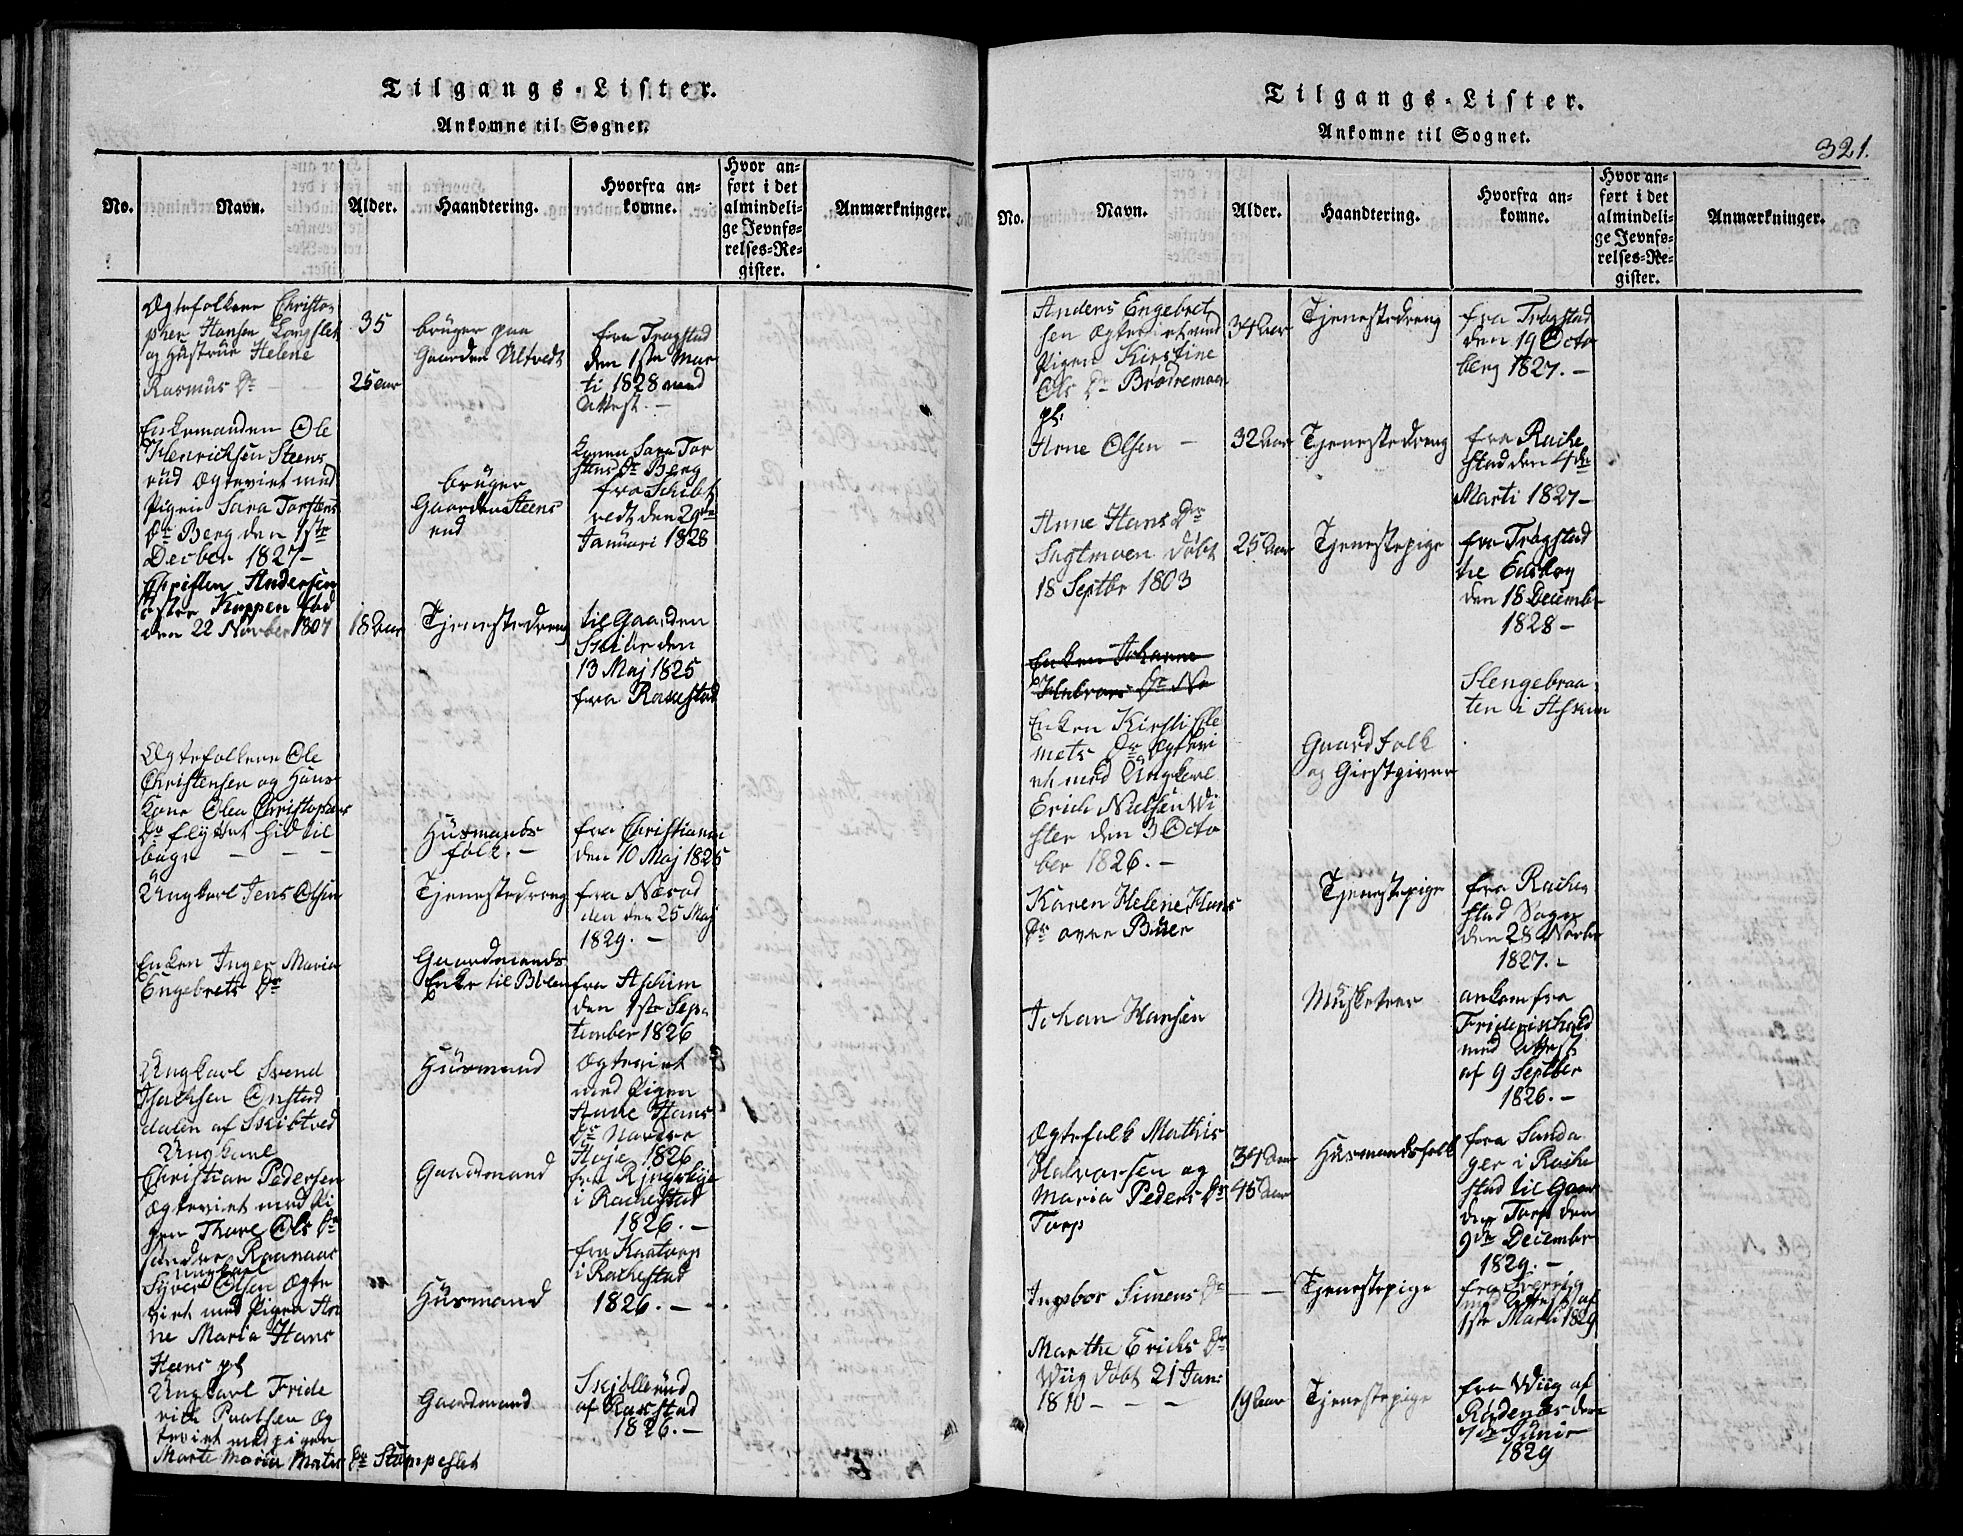 Tilgangs-Lister.
Ankomne til Sognet.
No.
Navn.
Alder.
Haandtering.
Hvorfra an-
komne.
Hvor an-
ført i det
almindeli-
ge Jevnfø-
relses-Re-
gister.
Anmærkninger.
Ægtefolkene Christo-
pher Hansen Longslet
og Hustrue Helene
Rasmus Dr
35
25 aar
brüger paa
Gaarden Ültvedt
fra Trøgstad
den 1ste Mar
ti 1828 med
Attest. -
Enkemanden Ole
Henrichsen Steens
rüd Ægteviet med
Pigen Sara Torstens
Dr Berg den 1ste
Decber 1827 -
brüger
Gaarden Steens
rud
Konen Sara Tor
stens Dr Berg
fra Schibt
vedt den 29de
Januari 1828
Christen Andersen
Koppen fød
den 22 Novber 1807
18 Aar
Tjenestedreng
til Gaarden
den
13 Maj 1825
fra Rakestad
Ægtefolkene Ole
Christensen og Hans
Kone Olea Christophers
Dr flyttet hid til
bage - - -
Husmands
folk. -
fra Christiania
den 10 Maj 1825
Ungkarl Jens Olsen
Tjenestedreng
fra Næsod
den den 25 Maj
1829. -
Enken Inger Maria
Engebrets Dr
Gaardmands
Enke til Bølen
fra Aschim
den 1ste Sep
tember 1826
Ungkarl Svend
Isachsen Onstad
dalen af Skibtved
Husmand
Ægteviet
med Pigen
Anne Hans
Dr Nordre
Haje 1826
Ungkarl
Christian Pedersen
Ægteviet med Pi
gen Thore Ols Dr
søndre Raanaas
Gaardmand
fra
i Rachestad
1826. -
Ungkarl
Syver Olsen Ægte
viet med Pigen An
ne Maria Hans
Steens pl
Husmand
fra Kaatorp
i Rachestad
1826. -
Ungkarl Fride
rich Paulsen Æg
teviet med pigen
Marte Maria Mates Dr Stumpeslet
Gaardmand
Skjøllerüd
af Rakstad
1826. -
Tilgangs-Lister.
Ankomne til Sognet.
321.
No.
Navn.
Alder.
Haandtering.
Hvorfra an-
komne.
Hvor an-
ført i det
almindeli-
ge Jevnfø-
relses-Re-
gister.
Anmærkninger.
Anders Engebret
sen Ægteviet med
Pigen Kirstine
Ols Dr Brødremoen
pl.
34 Aar
Tjenestedreng
fra Trøgstad
den 19 Octo
berg 1827. -
Arne Olsen -
32 Aar
Tjenestedreng
fra Rache
stad den 4de
Marti 1827 -
Anne Hans Dr
Sagtmoen døbt
18 Septbr 1803
25 Aar
Tjenestepige
fra Trøgstad
ne Eidskog
den 18 Decembr
1828 -
Enken Johanne
Halvors Dr No
Enken Kirsti Cle
mets Dr Ægtevi
et med Ungkarl
Erich Nielsen Wi
ster den 3 Octo
ber 1826. -
Gaardfolk
og Giestgiver
Slengebraa
ten i Askim
Karen Helene Hans
Dr øvre Buer
Tjenestepige
fra Rache
stad Sogn
den 28 Novbr
1827. -
Johan Hansen
Musketeer
ankom fra
Friderichshald
med Attest
af 9 Septber
1826. -
Ægtefolk Mathis
Halvorsen og
Maria Peders Dr
Torp
34 Aar
45 Aar
Husmandsfolk
fra Sanda
ger i Rache
stad til Gaar
den Torp den
9de Decembr
1829. -
Ingebor Simens Dr
- -
Tjenestepige
fra Sverrig
med Attest af
1ste Marti 1829
Marthe Erichs Dr
Wiig døbt 21 Jan:
1810 - - -
19 Aar
Tjenestepige
fra Wiig af
Rødenæs den
7de Junii
1829